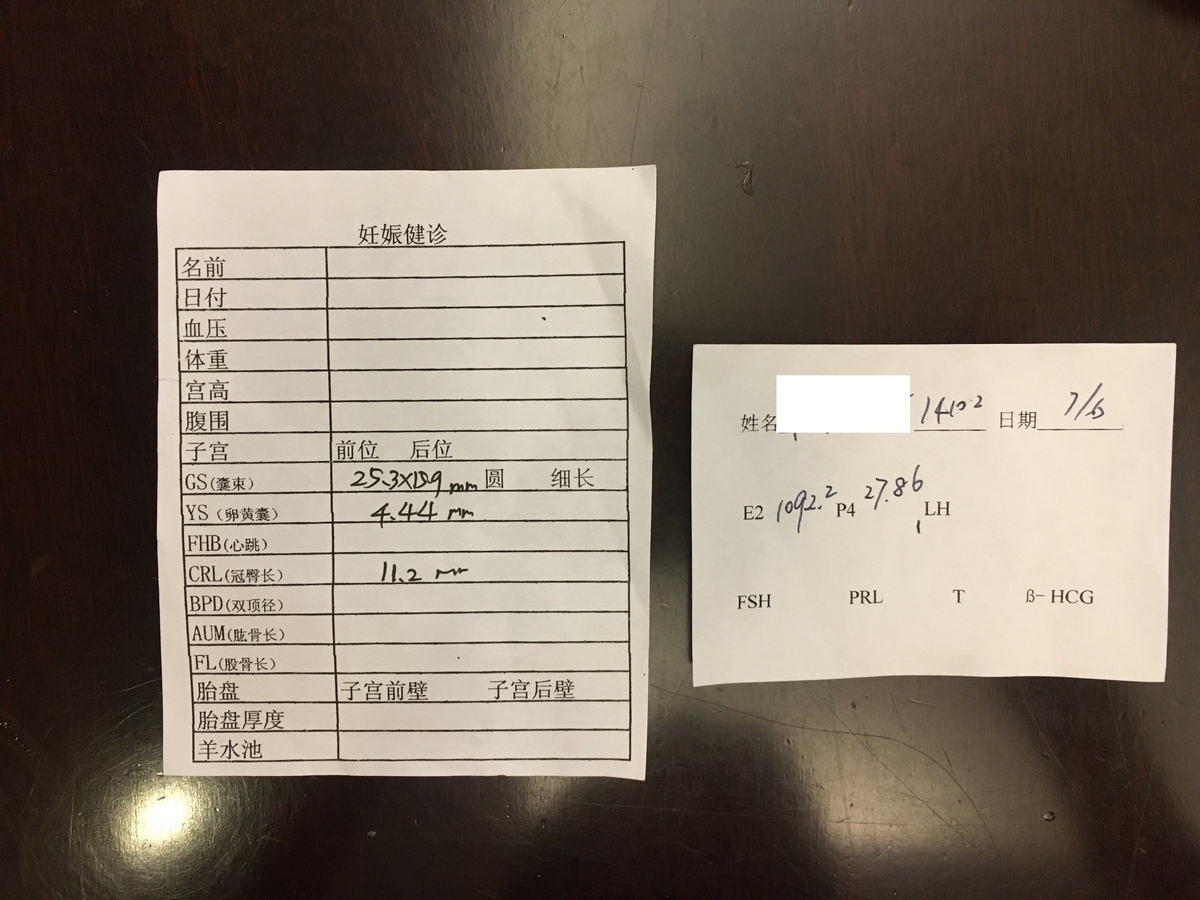 妊娠健诊
名前
日付
血压
体重
宫高
腹围
子宫 前位 后位
GS(囊束) 25.3×15.9 mm 圆 细长
YS(卵黄囊) 4.44 mm
FHB(心跳)
CRL(冠臀长) 11.2 mm
BPD(双顶径)
AUM(肱骨长)
FL(股骨长)
胎盘 子宫前壁 子宫后壁
胎盘厚度
羊水池
姓名 日期
E2 1092.2 P4 27.86 LH
FSH PRL T ß-HCG